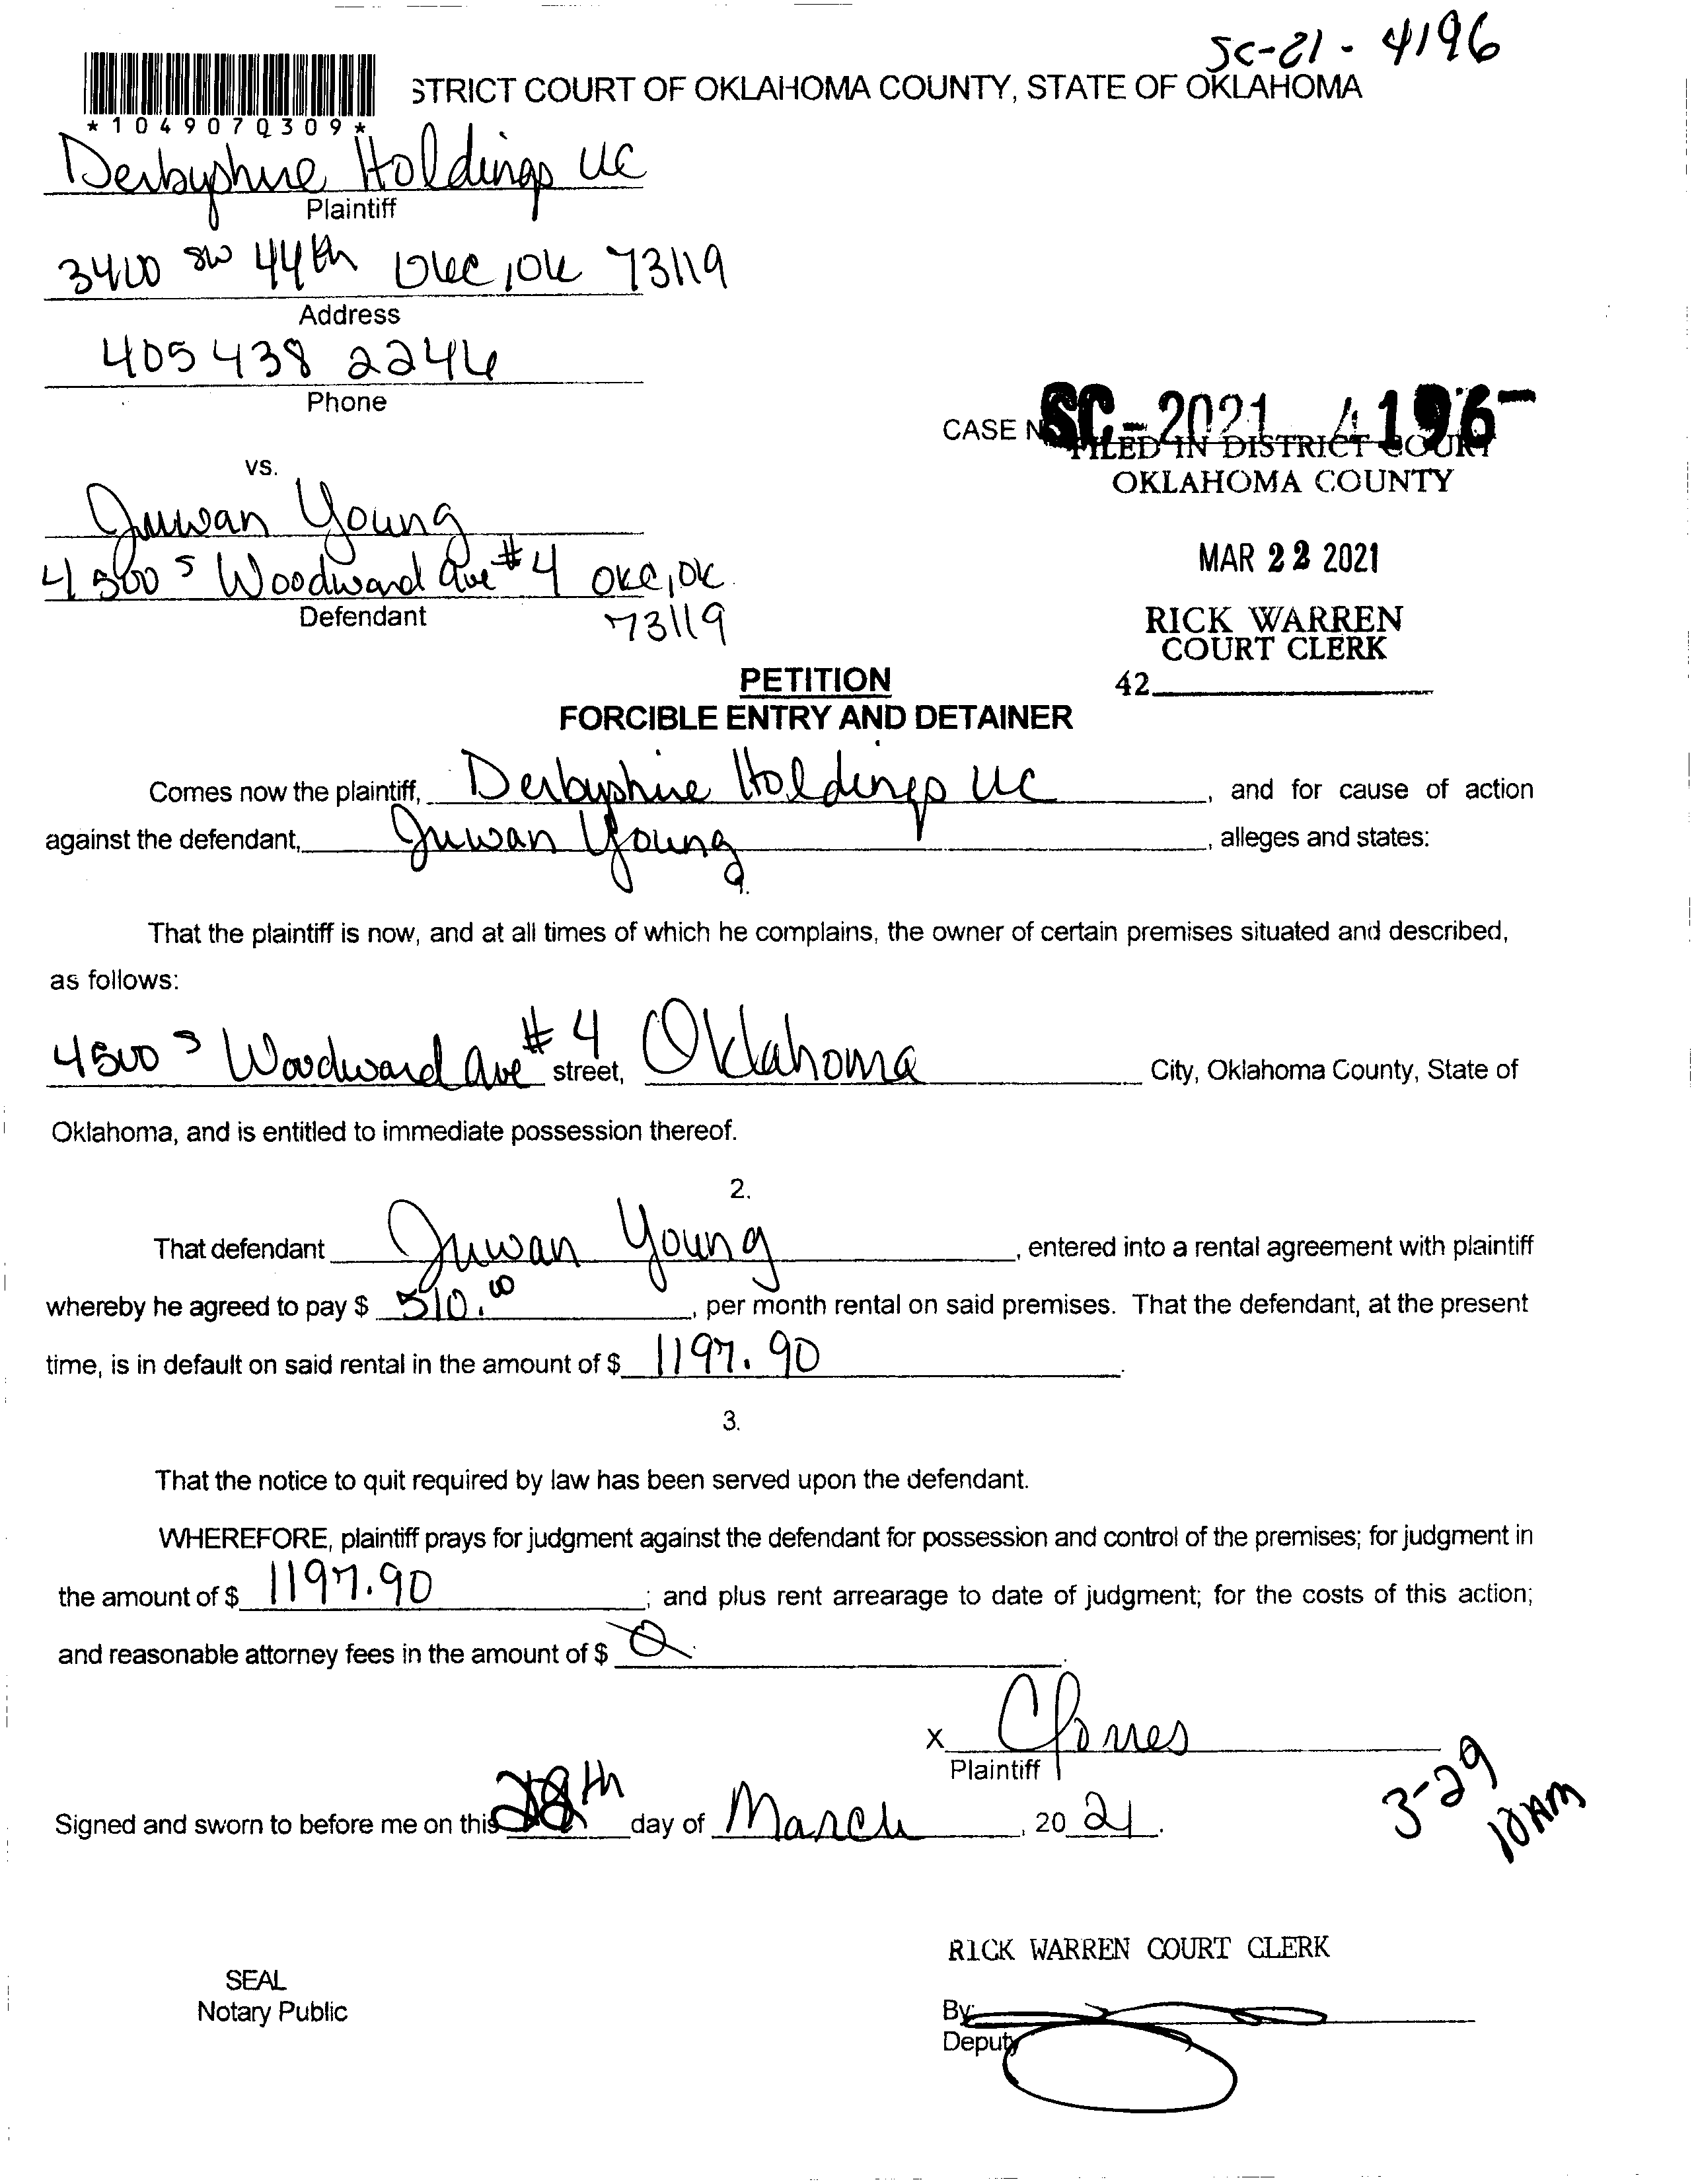 SC-21-4196
STRICT COURT OF OKLAHOMA COUNTY, STATE OF OKLAHOMA
*1049070309*
Derbyshire Holdings LLC
Plaintiff
3400 SW 44th OKC, OK 73119
Address
405 438 2246
Phone
CASE N SC-2021 4196-
FILED IN DISTRICT COURT
OKLAHOMA COUNTY
vs.
Juwan Young
MAR 22 2021
4500 S Woodward Ave #4 OKC, OK.
Defendant 73119
RICK WARREN
COURT CLERK
42
PETITION
FORCIBLE ENTRY AND DETAINER
Comes now the plaintiff, Derbyshire Holdings LLC, and for cause of action
against the defendant, Juwan Young, alleges and states:
1.
That the plaintiff is now, and at all times of which he complains, the owner of certain premises situated and described,
as follows:
4500 S Woodward Ave #4 street, Oklahoma City, Oklahoma County, State of
Oklahoma, and is entitled to immediate possession thereof.
2.
That defendant Juwan Young, entered into a rental agreement with plaintiff
whereby he agreed to pay $ 510.00, per month rental on said premises. That the defendant, at the present
time, is in default on said rental in the amount of $ 1197.90.
3.
That the notice to quit required by law has been served upon the defendant.
WHEREFORE, plaintiff prays for judgment against the defendant for possession and control of the premises; for judgment in
the amount of $ 1197.90; and plus rent arrearage to date of judgment; for the costs of this action;
and reasonable attorney fees in the amount of $ 0.
X
Plaintiff
Signed and sworn to before me on this day of March, 20 21.
3-29
10AM
RICK WARREN COURT CLERK
SEAL
Notary Public
By:
Deputy